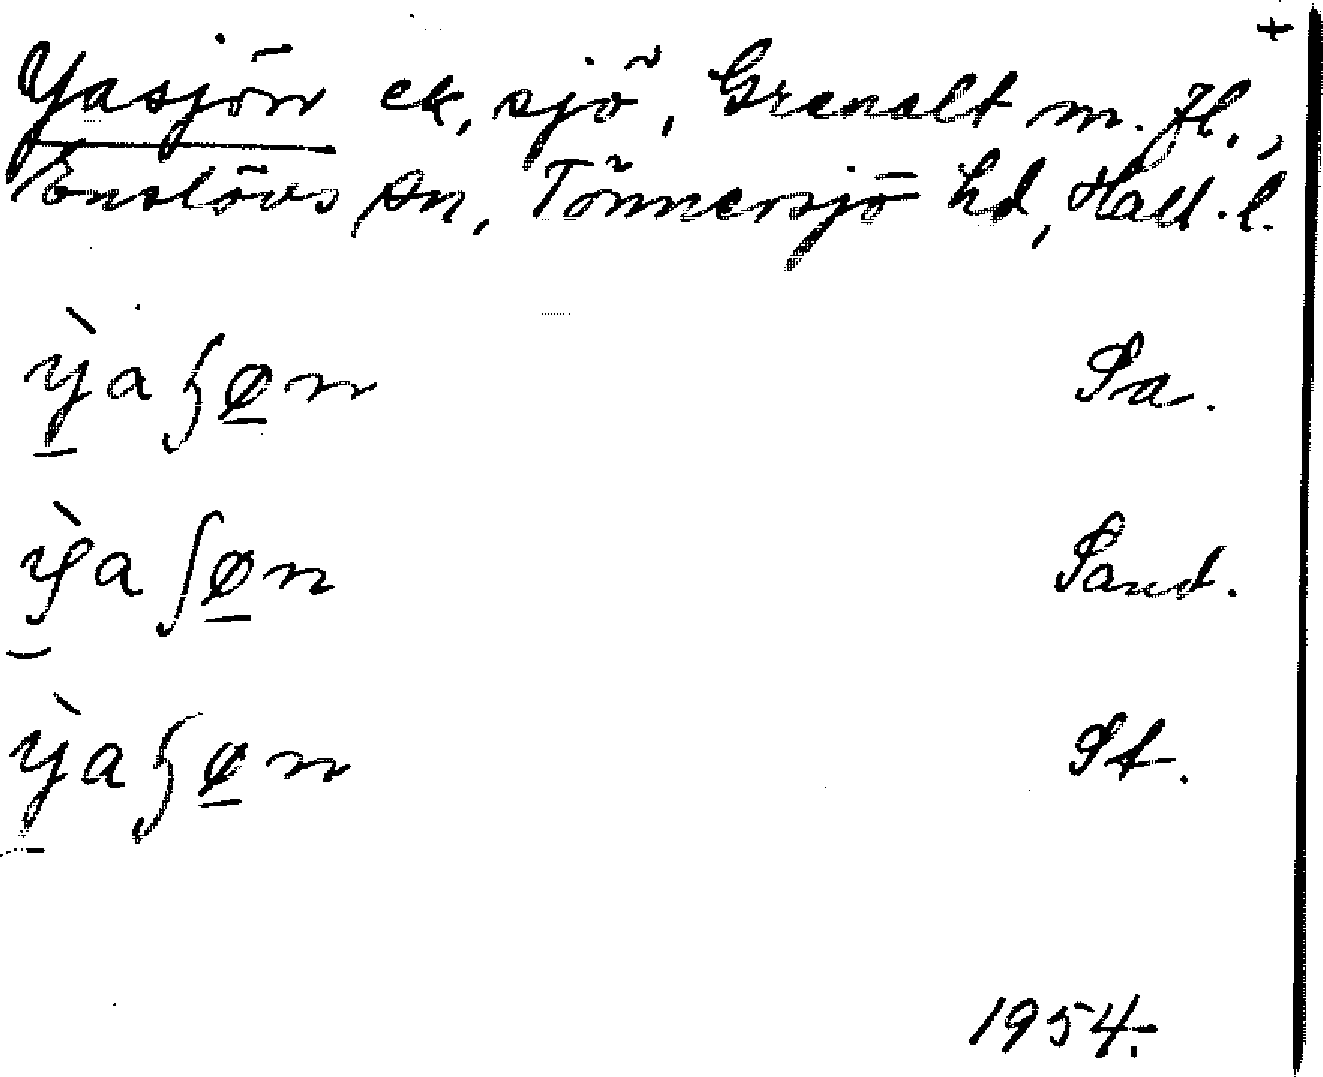 +
Yasjön ek, sjö, Grenalt m. fl.,
Enslövs sn, Tönnersjö hd, Hall. l.
ỳ̠aɧø̠n Pa.
ỳ̠aʃø̠n Pand.
ỳ̠aɧø̠n Pt.
1954.